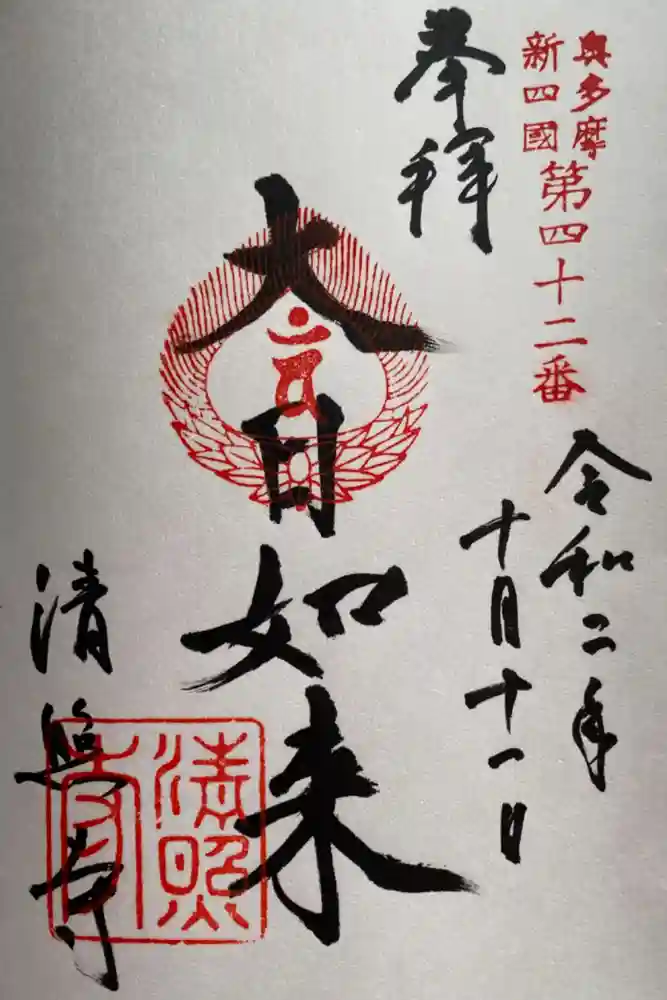 奥多摩
新四國
第四十二番
令和二年
十月十一日
奉拝
大日如来
清照寺
清照寺